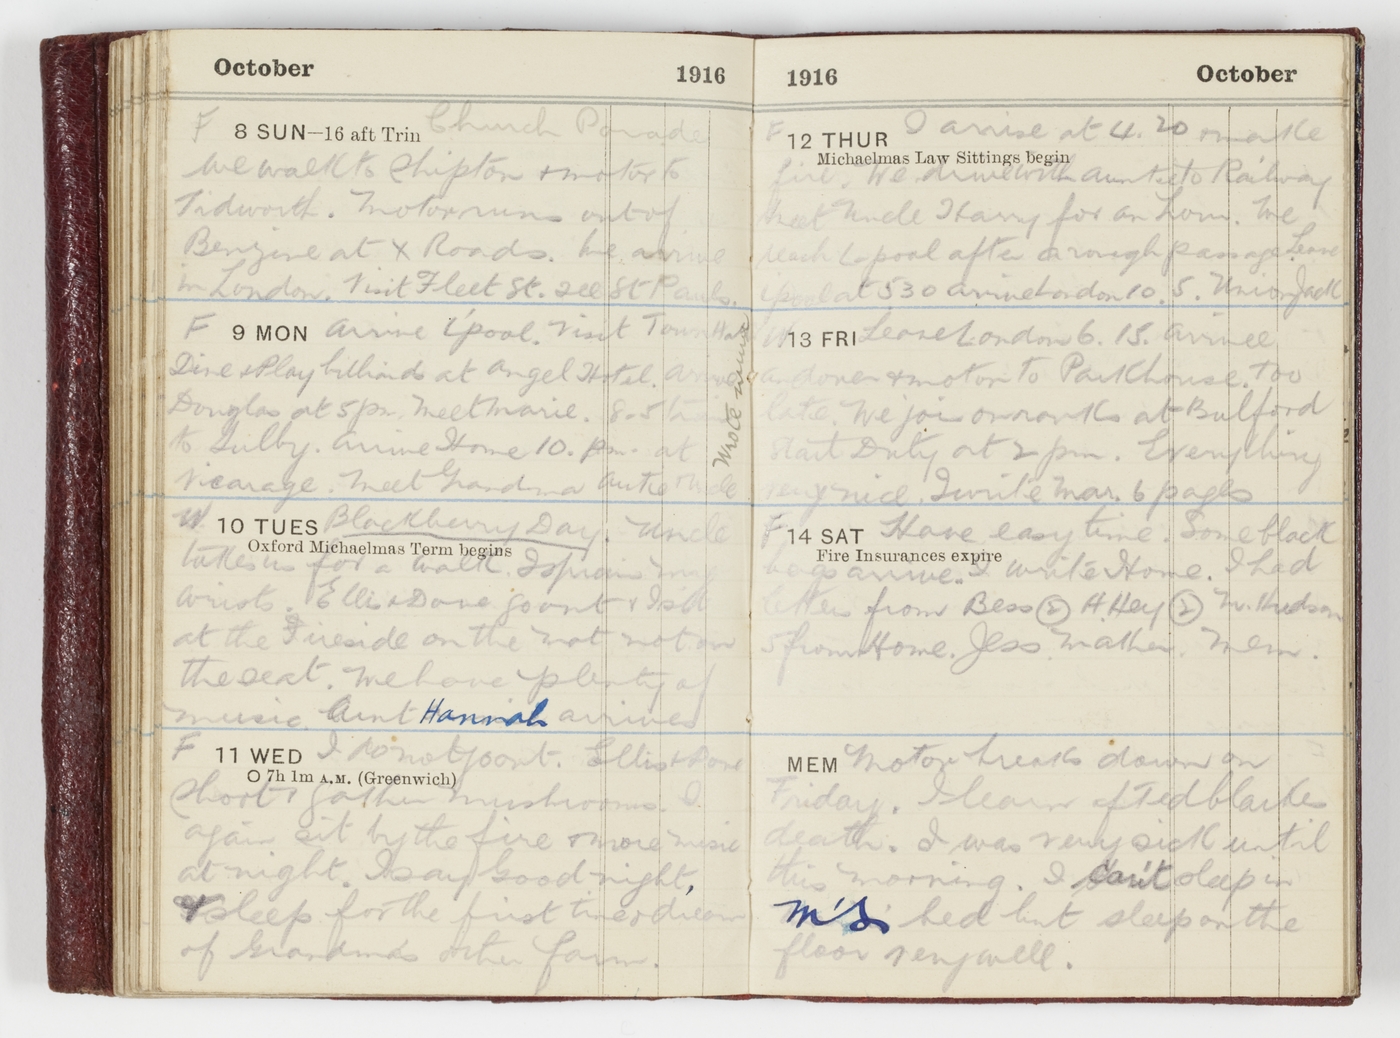 October 1916
F 8 SUN—16 aft Trin Church Parade
we walk to Shipton & motor to
Tidworth. Motor runs out of
Benzine at X Roads. We arrive
in London. Visit Fleet St. see St Pauls.
F 9 MON Arrive L'pool. Visit Town Hall
Dine & Play billiards at Angel Hotel. Arrive
Douglas at 5 pm. Meet Marie.
to Sulby. Arrive Home 10. pm. at
Vicarage. Meet Grandma Autie & Uncle
Wrote
W 10 TUES Blackberry Day. Uncle
Oxford Michaelmas Term begins
takes us for a walk. I sprain my
wrists. Ellis & Dave go out & I sit
at the Fireside on the mat not on
the seat. We have plenty of
music. Aunt Hannah arrives
F 11 WED I do not go out. Ellis & Dave
O 7h 1m A.M. (Greenwich)
shoot & gather mushrooms. I
again sit by the fire & more music
at night. I say Good night,
& sleep for the first time & dream
of Grandma's other farm.
1916 October
F 12 THUR I arise at 4.20 & make
Michaelmas Law Sittings begin
fire. We drive with auntie to Railway
Meet Uncle Harry for an hour. We
reach L'pool after a rough passage Leave
L'pool at 530 arrive London 10. 5. Union Jack
W 13 FRI Leave London 6. 15. Arrive
Andover & motor to Parkhouse. Too
late. We join our ranks at Bulford
Start Duty at 2 pm. Everything
very nice. I write Mar. 6 pages
F 14 SAT Have easy time. Some black
Fire Insurances expire
bags arrive. I write Home. I had
letters from Bess (2) A Hey (2) W. Hudson
5 from Home. Jess. Mather. Mem.
MEM Motor breaks down on
Friday. I learn of Ted Blackes
death. I was very sick until
this morning. I can't sleep in
M's bed but sleep on the
floor very well.